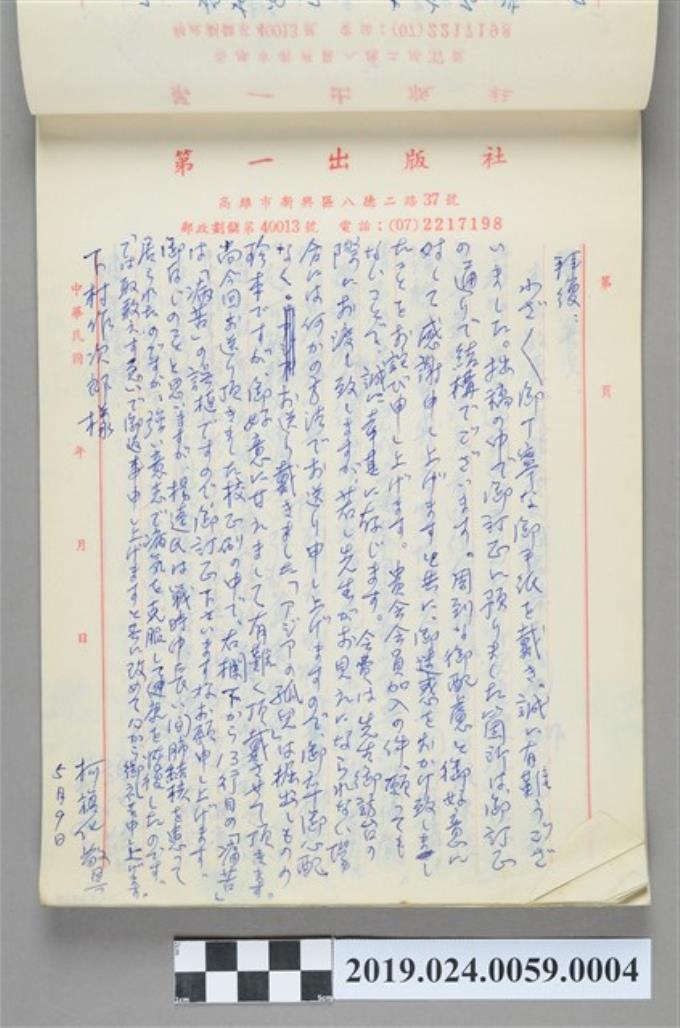 第一出版社
高雄市新興區八德二路37號
郵政劃儲第40013號 電話:(07)2217198
第 頁
拝復:
わざ〱御丁寧な御手紙を戴き、誠に有難うござ
いました。拙稿の中で御訂正に預りました箇所は、御訂正
の通りで結構でございます。周到な御配慮と御好意に
対して感謝申し上げます と共に、御迷惑をおかけ致しまし
たことをお詫び申し上げます。貴会会員加入の件、願っても
ないことで、誠に幸甚に存じます。会費は先生御訪台の
際にお渡し致しますが、若し先生がお見えになられない場
合には何かの方法でお送り申し上げますので、御心配
なく。お送り戴きました「アジアの孤児」は掘出しものの
珍本ですが、御好意に甘えまして有難く頂戴させて頂きます。
尚今回お送り頂きました校正刷の中で、右欄下から13行目の「痛苦」
は「病苦」の誤植ですので、御訂正下さいますようお願申し上げます。
御存じのことと思いますが、楊逵氏は戦時中長い間肺結核を患って
居られたのですが、強い意志で病気を克服して健康を恢復したのです。
では取敢えず急いで御返事申し上げますと共に改めて心から御礼を申し上げます。
柯旗化 敬具
5月9日
下村作次郎様
中華民國 年 月 日
2019.024.0059.0004